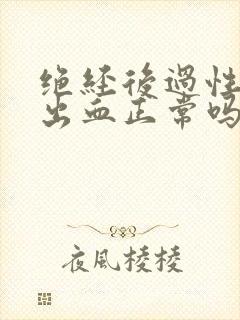 绝经後過性
出血正常吗
夜風棱棱